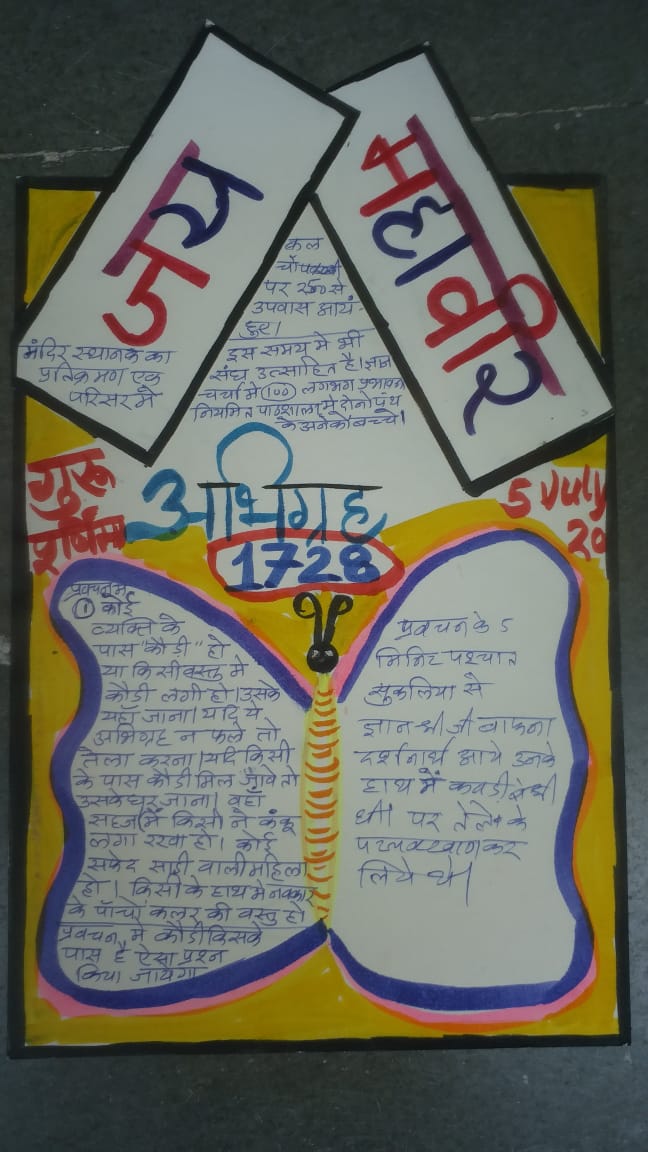 जय
महावीर
कल
पर 250 से
उपवास आयं-
हुए।
इस समय मे भी
संघ उत्साहित है। ज्ञान
चर्चा मे 100 लगभग
नियमित पाठशाला मे दोनो पंथ
के अनेको बच्चे।
मंदिर स्थानक का
प्रतिक्रमण एक
परिसर मे
गुरू
पूर्णिमा
5 July
20
अभिग्रह
1728
प्रवचन मे
① कोई
व्यक्ति के
पास "कौडी" हो
या किसी वस्तु मे
कौडी लगी हो। उसके
यहाँ जाना। यदि ये
अभिग्रह न फले तो
तेला करना। यदि किसी
के पास कौडी मिल जावे तो
उसके घर जाना। वहाँ
सहज मे किसी ने कंकू
लगा रखा हो। कोई
सफेद साडी वाली महिला
हो। किसी के हाथ मे नवकार
के पाँचो कलर की वस्तु हो
प्रवचन मे कौडी किसके
पास है ऐसा प्रश्न
किया जायेगा
प्रवचन के 5
मिनिट पश्चात
सुकलिया से
ज्ञान श्री जी बाफना
दर्शनार्थ आये उनके
हाथ में कवडी
थी। पर तेले के
पच्चक्खाण कर
लिये थे।